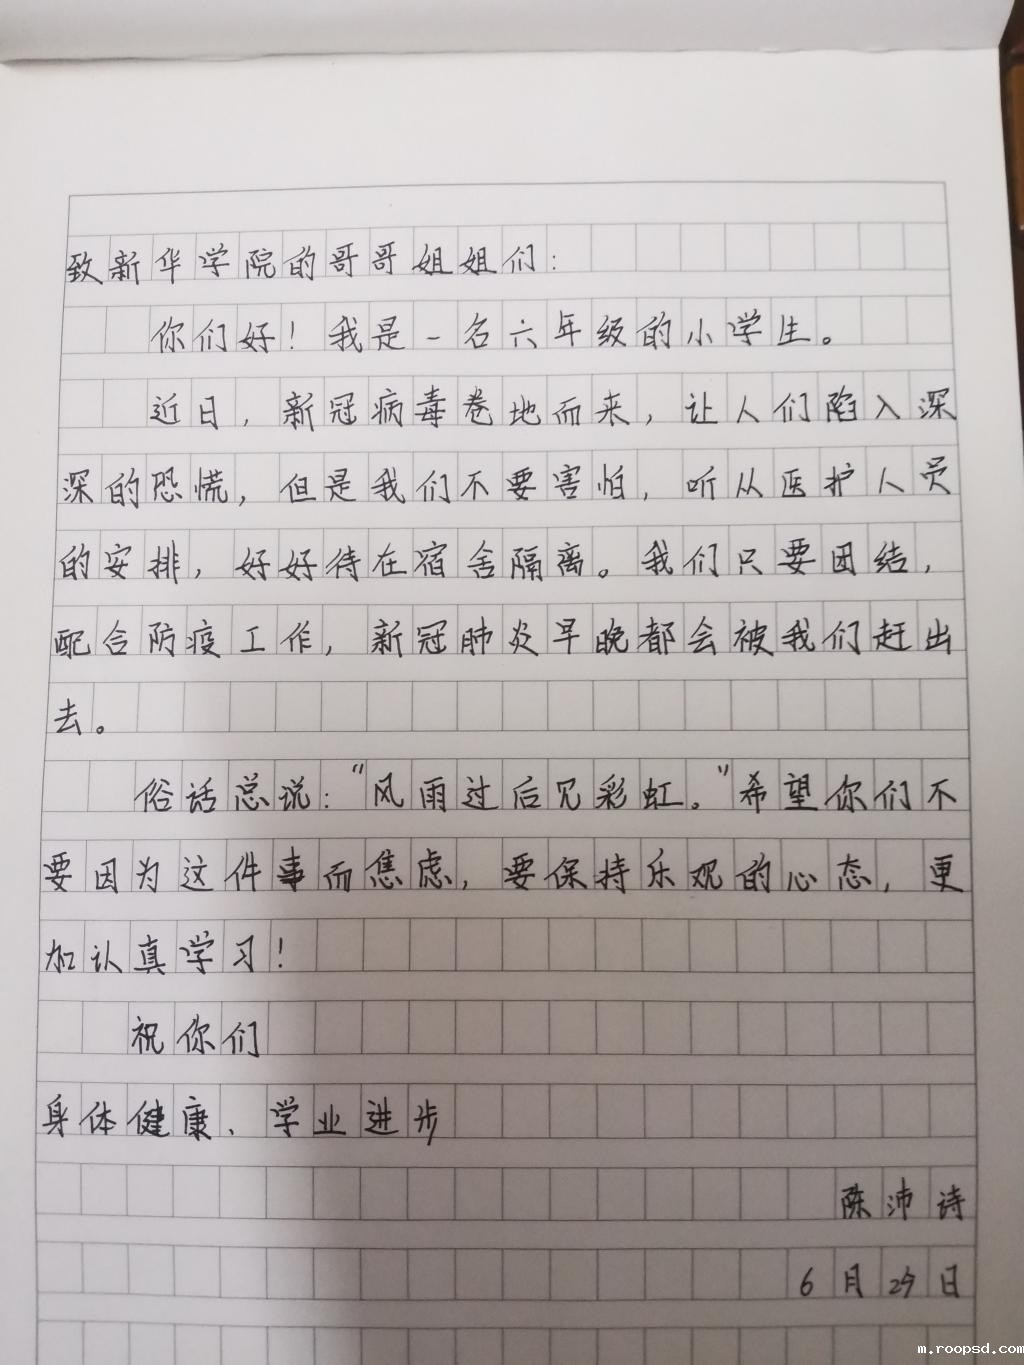 致新华学院的哥哥姐姐们：
你们好！我是一名六年级的小学生。
近日，新冠病毒卷地而来，让人们陷入深
深的恐慌，但是我们不要害怕，听从医护人员
的安排，好好待在宿舍隔离。我们只要团结，
配合防疫工作，新冠肺炎早晚都会被我们赶出
去。
俗话总说：“风雨过后见彩虹。”希望你们不
要因为这件事而焦虑，要保持乐观的心态，更
加认真学习！
祝你们
身体健康、学业进步
陈沛诗
6月29日
m.roopsd.com